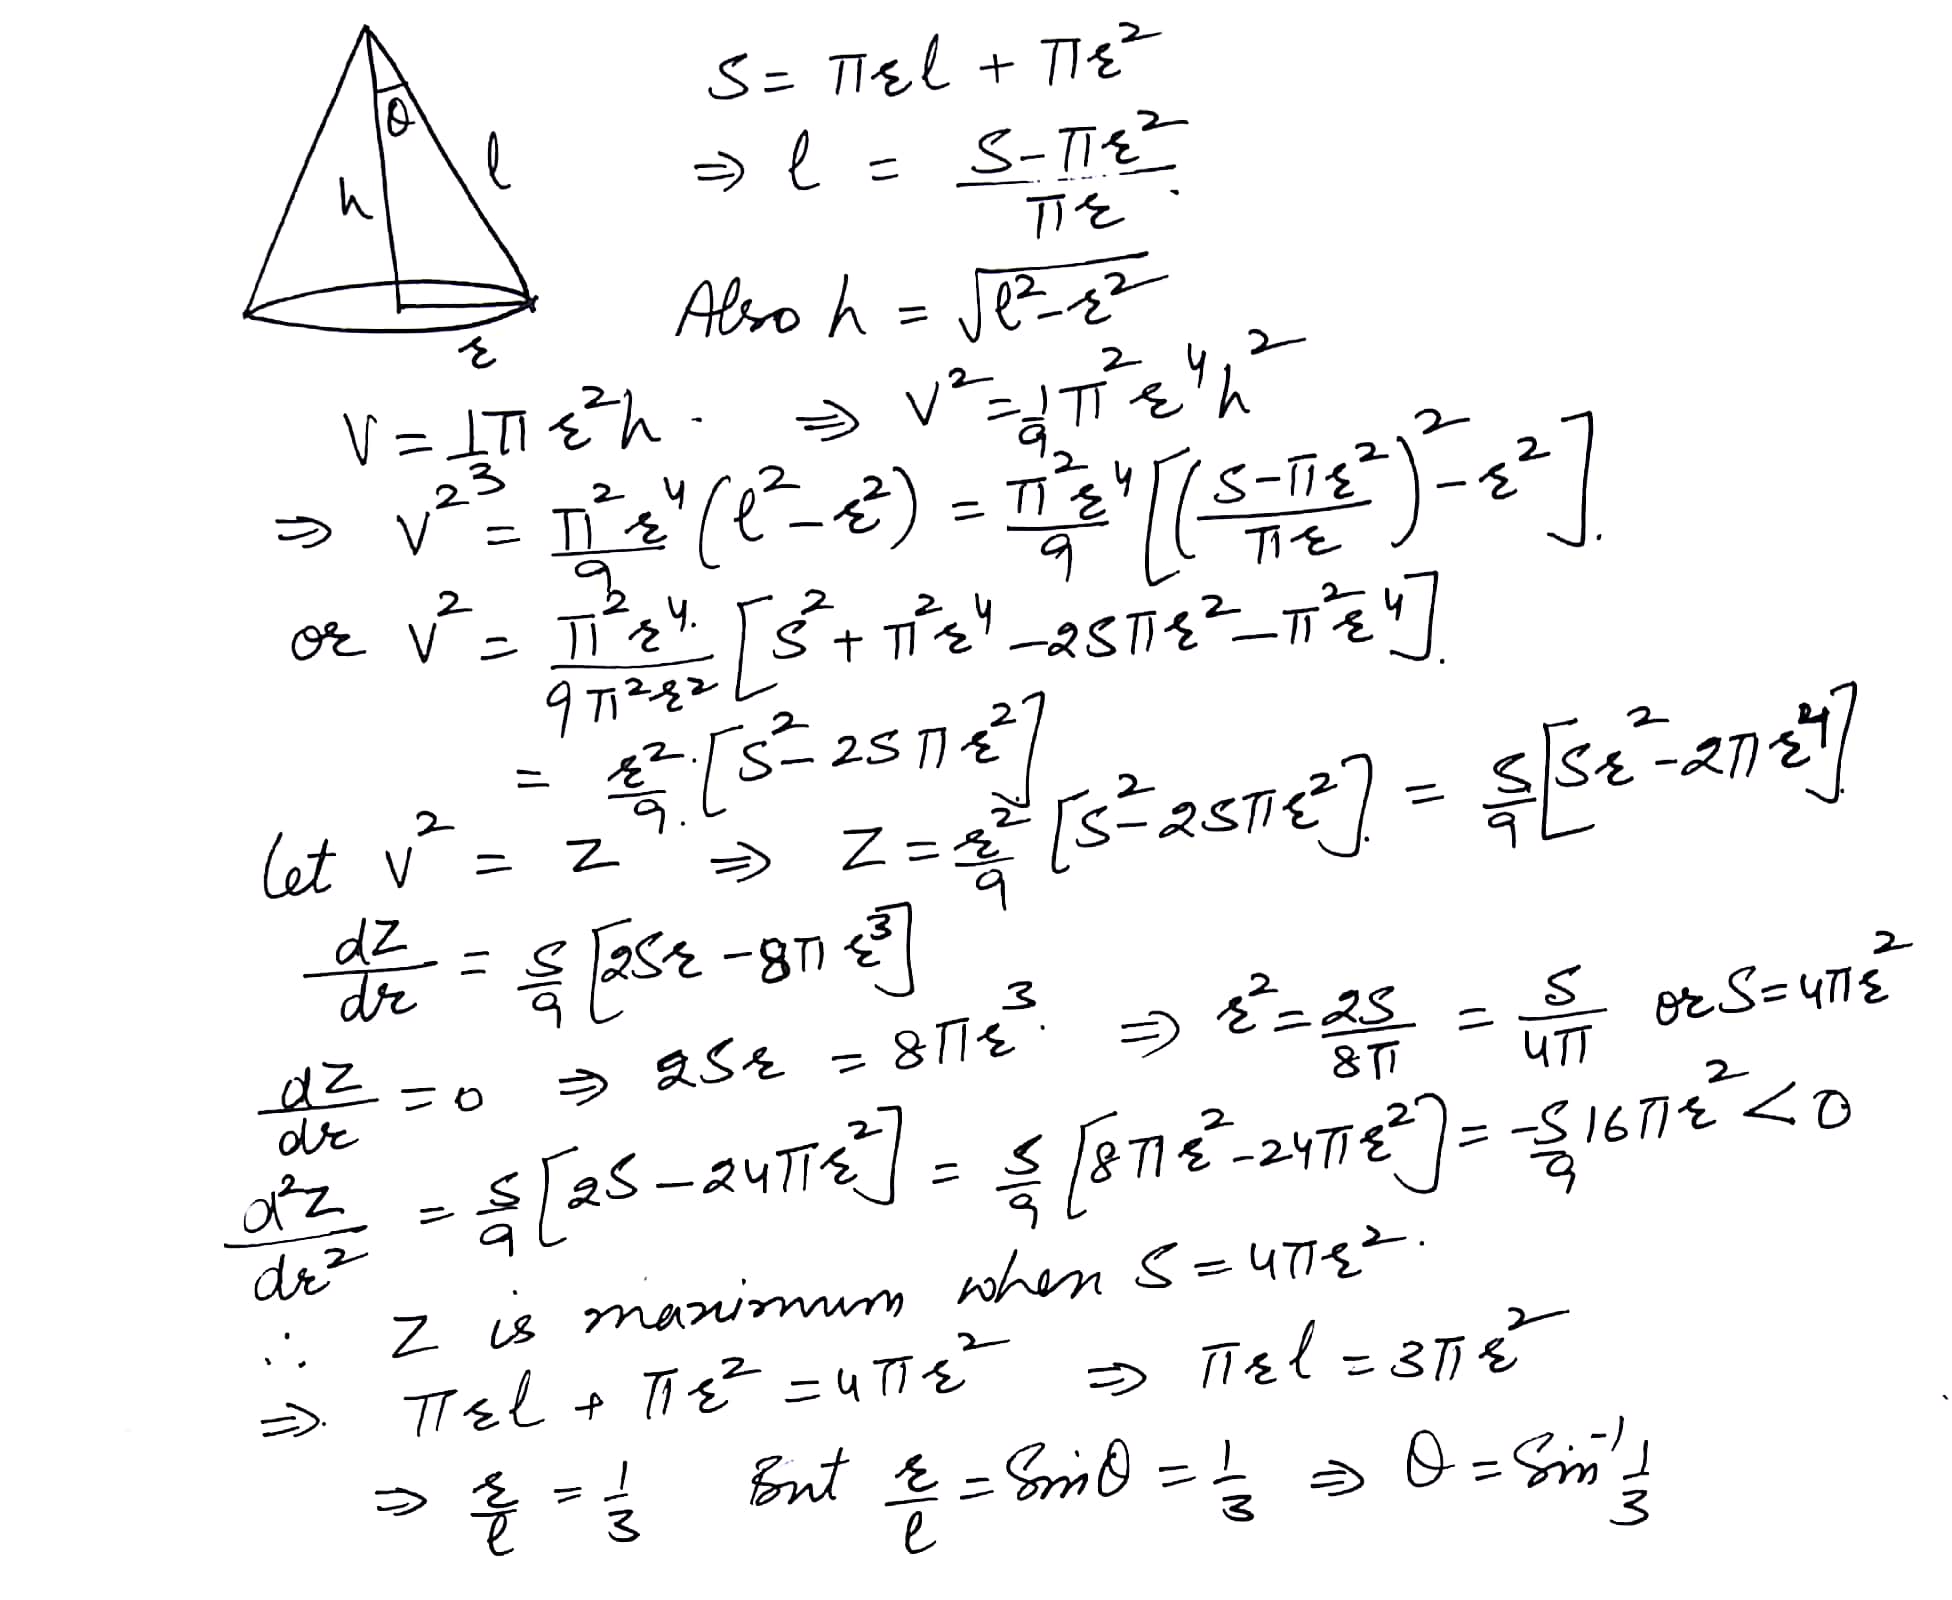 θ
l
h
r
S = πrl + πr²
⇒ l = (S-πr²)/(πr)
Also h = √(l²-r²)
V = 1/3 π r²h. ⇒ V² = 1/9 π² r⁴ h²
⇒ V² = π²r⁴/9 (l²-r²) = π²r⁴/9 [((S-πr²)/(πr))² - r²].
or V² = π²r⁴/(9π²r²) [S² + π²r⁴ - 2Sπr² - π²r⁴].
= r²/9 [S² - 2Sπr²]
Let V² = Z ⇒ Z = r²/9 [S² - 2Sπr²] = S/9 [Sr² - 2πr⁴]
dZ/dr = S/9 [2Sr - 8πr³]
dZ/dr = 0 ⇒ 2Sr = 8πr³. ⇒ r² = 2S/8π = S/4π or S = 4πr²
d²Z/dr² = S/9 [2S - 24πr²] = S/9 [8πr² - 24πr²] = -S/9 16πr² < 0
∴ Z is maximum when S = 4πr².
⇒. πrl + πr² = 4πr² ⇒ πrl = 3πr²
⇒ r/l = 1/3 But r/l = Sinθ = 1/3 ⇒ θ = Sin⁻¹ 1/3